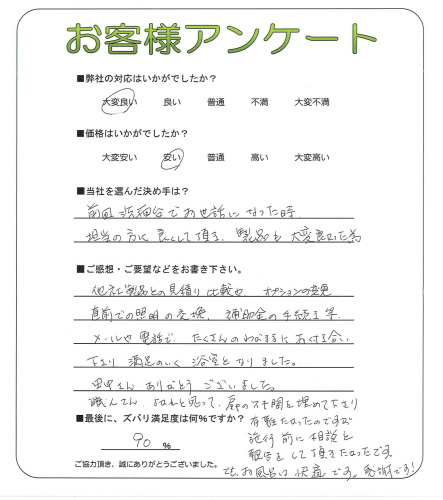 お客様アンケート
■弊社の対応はいかがでしたか?
大変良い 良い 普通 不満 大変不満
■価格はいかがでしたか?
大変安い 安い 普通 高い 大変高い
■当社を選んだ決め手は?
前回 洗面台でお世話になった時
担当の方に良くして頂き、製品も大変良かった為
■ご感想・ご要望などをお書き下さい。
他社製品との見積り比較や、オプションの変更
直前での照明の交換、補助金の手続き等
メールや電話で、たくさんのわがままにおつき合い
下さり 満足のいく 浴室となりました。
田中さん ありがとうございました。
職人さん、よかれと思って、扉の下の隙間を埋めて下さり
■最後に、ズバリ満足度は何%ですか?
有難たかったのですが
施行前に相談と
報告をして頂きたかったです。
でも、お風呂は快適です。感謝です!
90 %
ご協力頂き、誠にありがとうございました。